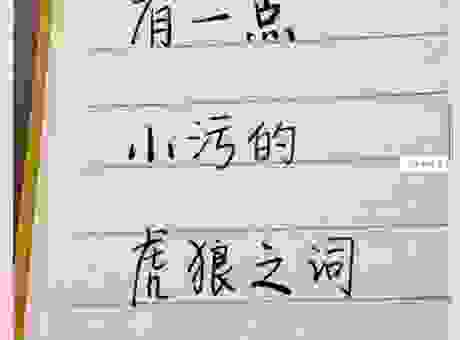 有一点
小污的
虎狼之词